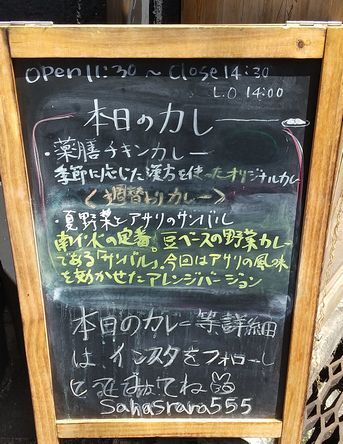 OPEN 11:30 ~ Close 14:30
L.O 14:00
本日のカレー
・薬膳チキンカレー
季節に応じた漢方を使ったオリジナルカレー
〈週替わりカレー〉
・夏野菜とアサリのサンバル
南インドの定番。豆ベースの野菜カレー
である「サンバル」。今回はアサリの風味
を効かせたアレンジバージョン
本日のカレー等詳細
は インスタをフォローし
てね
Sahasrara555